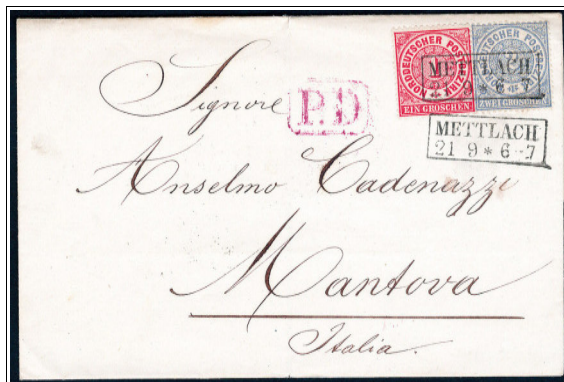 NORDDEUTSCHER POSTBEZIRK
EIN GROSCHEN
NORDDEUTSCHER POSTBEZIRK
ZWEI GROSCHEN
METTLACH
21 9 * 6-7
METTLACH
21 9 * 6-7
P.D
Signore
Anselmo Cadenazzi
Mantova
Italia.